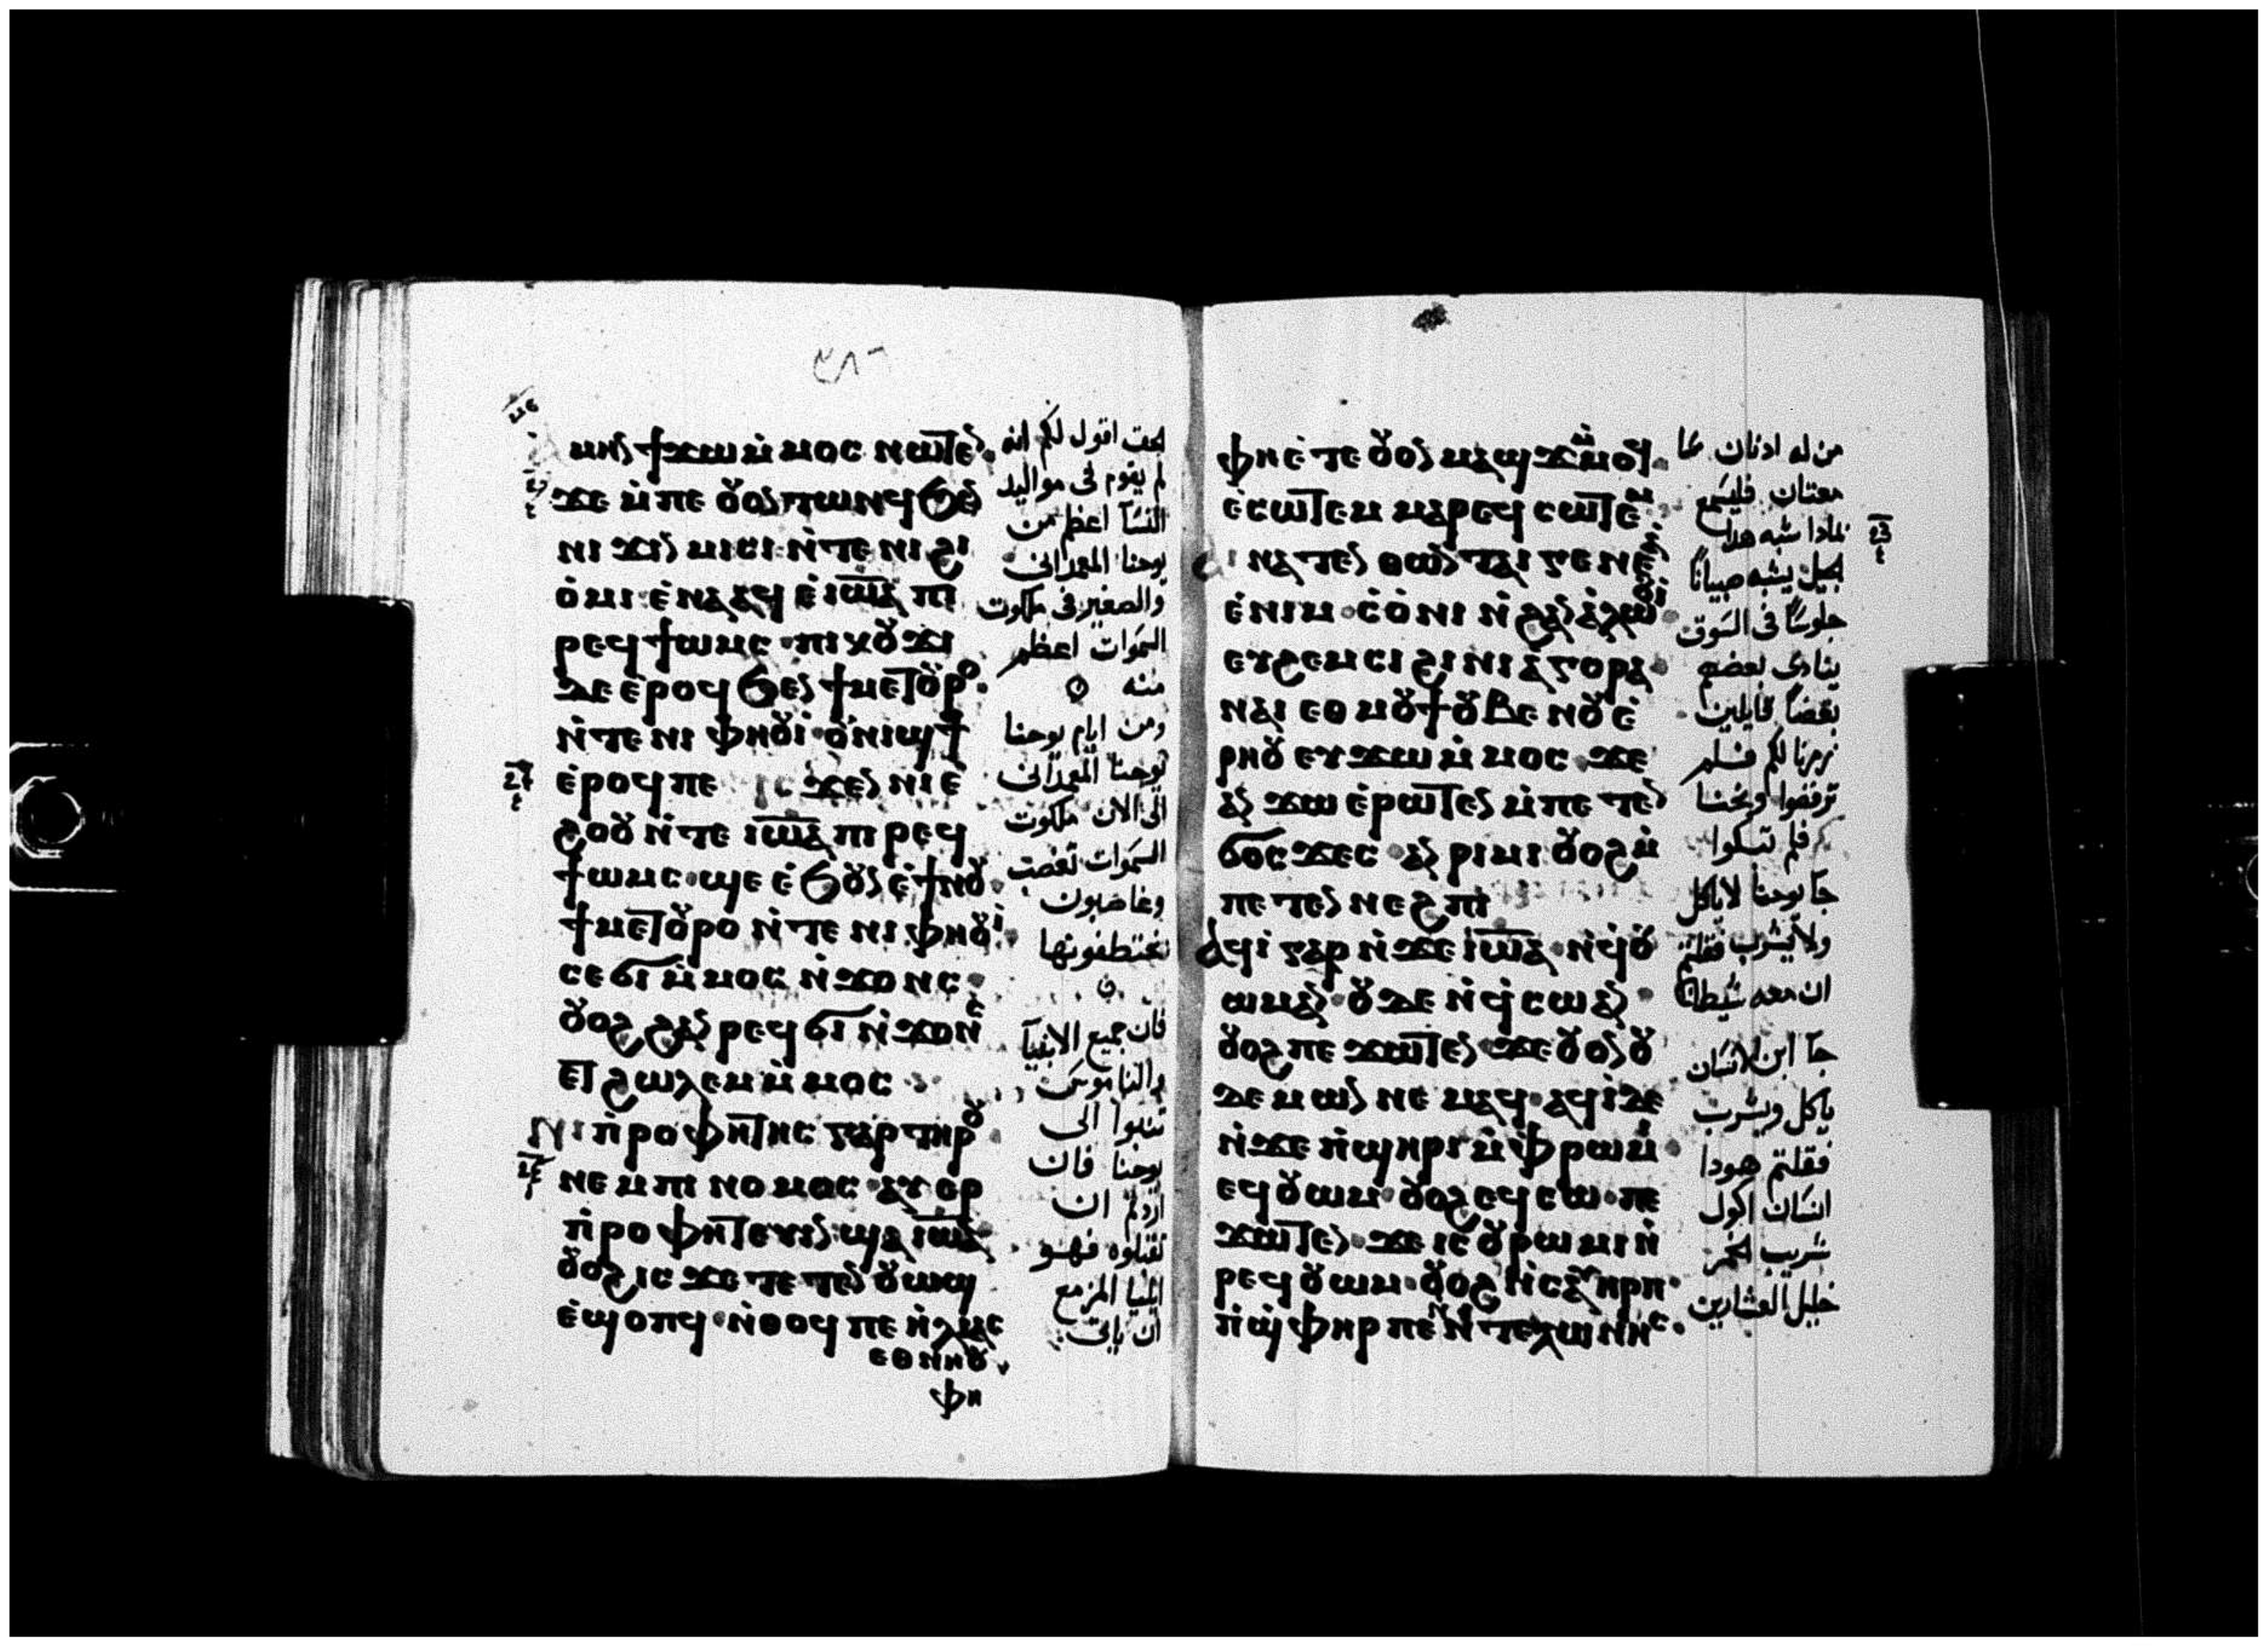 ⲙⲏⲛ ϯϫⲱ ⲙ̇ⲙⲟⲥ ⲛⲱⲧⲉⲛ
ϫⲉ ⲙ̇ⲡⲉ ⲟⲩⲟⲛ ⲧⲱⲛϥ ϧⲉⲛ
ⲛⲓ ϫⲓⲛⲙⲓⲥⲓ ⲛ̇ⲧⲉ ⲛⲓ ϩⲓ
ⲟ̇ⲙⲓ ⲉ̇ⲛⲁⲁϥ ⲉ̇ⲓⲱⲁ ⲡⲓ
ⲣⲉϥϯⲱⲙⲥ ⲡⲓⲕⲟⲩϫⲓ
ⲇⲉ ⲉ̇ⲣⲟϥ ϧⲉⲛ ϯⲙⲉⲧⲟⲩⲣⲟ
ⲛ̇ⲧⲉ ⲛⲓ ⲫⲏⲟⲩⲓ̇ ⲟⲩⲛⲓϣϯ
ⲉ̇ⲣⲟϥ ⲡⲉ ⲓⲥϫⲉⲛ ⲛⲓⲉ̇
ϩⲟⲟⲩ ⲛ̇ⲧⲉ ⲓⲱⲁ ⲡⲓ ⲣⲉϥ
ϯⲱⲙⲥ ϣⲉ ⲉ̇ϧⲟⲩⲛ ⲉ̇ϯⲛⲟⲩ
ϯⲙⲉⲧⲟⲩⲣⲟ ⲛ̇ⲧⲉ ⲛⲓ ⲫⲏⲟⲩⲓ̇
ⲥⲉϭⲓ ⲙ̇ⲙⲟⲥ ⲛ̇ϫⲟⲛⲥ
ⲟⲩⲟϩ ϩⲁⲛ ⲣⲉϥϭⲓ ⲛ̇ϫⲟⲛⲥ
ⲉⲧϩⲱⲗⲉⲙ ⲙ̇ⲙⲟⲥ
ⲛⲓ ⲡ̇ⲣⲟⲫⲏⲧⲏⲥ ⲅⲁⲣ ⲧⲏⲣⲟⲩ
ⲛⲉⲙ ⲡⲓ ⲛⲟⲙⲟⲥ ⲁⲩⲉⲣ
ⲡ̇ⲣⲟⲫⲏⲧⲉⲩⲓⲛ ϣⲁ ⲓⲱⲁ
ⲟⲩⲟϩ ⲓⲥϫⲉ ⲧⲉⲧⲉⲛ ⲟⲩⲱϣ
ⲉ̇ϣⲟⲡϥ ⲛ̇ⲑⲟϥ ⲡⲉ ⲏ̇ⲗⲓⲁⲥ
ⲉⲑⲛⲏⲟⲩ
ⲫⲏ
بحق اقول لكم انه
لم يقوم فى مواليد
النسآ اعظم من
يوحنا المعمدانى
والصغير فى ملكوت
السموات اعظم
منه
ومن ايام يوحنا
يوحنا المعمدانى
الى الان ملكوت
السموات تغصب
وغاصبون
يختطفونها
فان جميع الانبيآ
والناموس
تنبوا الى
يوحنا فان
اردتم ان
تقبلوه فهو
ايليا المزمع
ان ياتى
ⲫⲏ ⲉ̇ⲧⲉ ⲟⲩⲟⲛ ⲙⲁϣϫ ⲙ̇ⲙⲟϥ
ⲉ̇ⲥⲱⲧⲉⲙ ⲙⲁⲣⲉϥ ⲥⲱⲧⲉⲙ
ⲁⲓⲛⲁⲧⲉⲛⲑⲱⲛ ⲧⲁⲓ ⲅⲉⲛⲉⲁ
ⲉ̇ⲛⲓⲙ ⲥ̇ⲟ̇ⲛⲓ ⲛ̇ϩⲁⲛⲁ̇ⲗⲱⲟⲩⲓ
ⲉⲩϩⲉⲙⲥⲓ ϩⲓ ⲛⲓ ⲁ̇ⲅⲟⲣⲁ
ⲛⲁⲓ ⲉⲑⲙⲟⲩϯ ⲟⲩⲃⲉ ⲛⲟⲩⲉ̇
ⲣⲏⲟⲩ ⲉⲩϫⲱ ⲙ̇ⲙⲟⲥ ϫⲉ
ⲁⲛ ϫⲱ ⲉ̇ⲣⲱⲧⲉⲛ ⲙ̇ⲡⲉ ⲧⲉⲛ
ϭⲟⲥϫⲉⲥ ⲁⲛ ⲣⲓⲙⲓ ⲟⲩⲟϩ ⲙ̇
ⲡⲉ ⲧⲉⲛ ⲛⲉϩⲡⲓ
ⲁϥⲓ̇ ⲅⲁⲣ ⲛ̇ϫⲉ ⲓⲱⲁ ⲛ̇ϥⲟⲩ
ⲱⲙ ⲁⲛ ⲟⲩⲇⲉ ⲛ̇ϥⲥⲱ ⲁⲛ
ⲟⲩⲟϩ ⲡⲉϫⲱⲧⲉⲛ ϫⲉ ⲟⲩⲟⲛ ⲟⲩ
ⲇⲉⲙⲱⲛ ⲛⲉⲙⲁϥ ⲁϥⲓ̇ ⲇⲉ
ⲛ̇ϫⲉ ⲡ̇ϣⲏⲣⲓ ⲙ̇ⲫⲣⲱⲙⲓ
ⲉϥⲟⲩⲱⲙ ⲟⲩⲟϩ ⲉϥⲥⲱ ⲡⲉ
ϫⲱⲧⲉⲛ ϫⲉ ⲓⲥ ⲟⲩⲣⲱⲙⲓ ⲛ̇
ⲣⲉϥⲟⲩⲱⲙ ⲟⲩⲟϩ ⲛ̇ⲥⲁⲩⲏⲣⲡ
ⲡ̇ϣⲫⲏⲣ ⲡⲉ ⲛ̇ⲛⲓⲧⲉⲗⲱⲛⲏⲥ
من له ادنان
معتان فليسمع
بمادا شبه هدا
الجيل يشبه صبياناً
جلوساً فى السوق
ينادى بعضهم
بعضاً قايلين
زمرنا لكم فلم
ترقصوا ونحنا
لكم فلم تبكوا
جآ يوحنا لا ياكل
ولا يشرب فقلتم
ان معه شيطان
جآ ابن الانسان
ياكل ويشرب
فقلتم هودا
انسان اكول
شريب الخمر
خليل العشارين